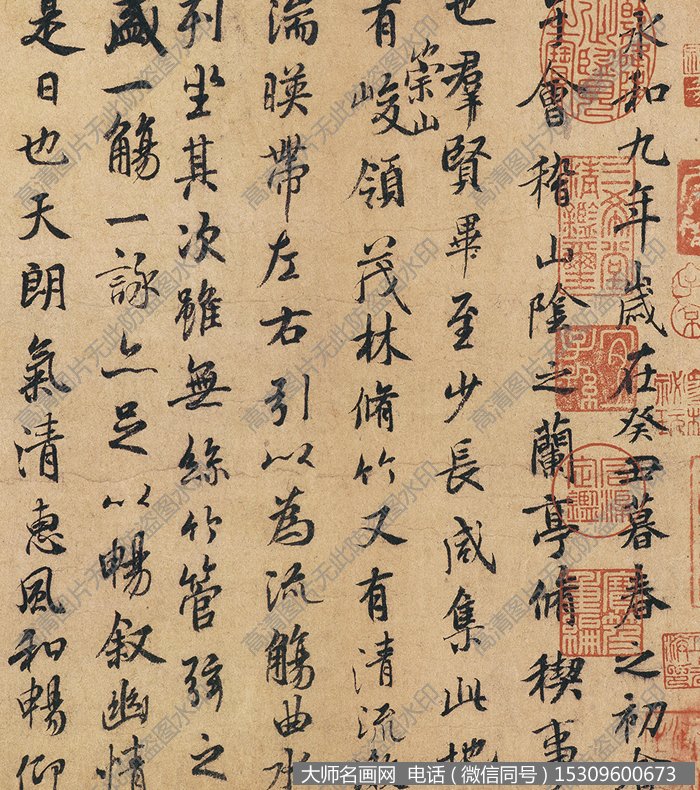 永和九年歲在癸丑暮春之初會
于會稽山陰之蘭亭脩稧事
也羣賢畢至少長咸集此地
有崇山峻領茂林脩竹又有清流激
湍暎帶左右引以為流觴曲水
列坐其次雖無絲竹管弦之
盛一觴一詠亦足以暢叙幽情
是日也天朗氣清惠風和暢仰
高清图片无此防盗图水印
大师名画网 电话（微信同号）15309600673